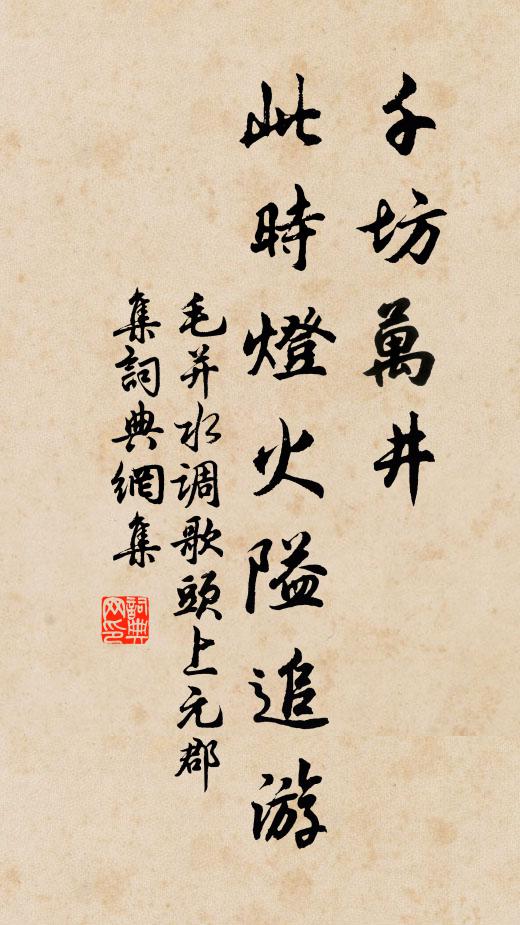 千坊萬井
此時燈火隘追游
毛并水调歌頭上元郡
集詞典網集
詞典网印